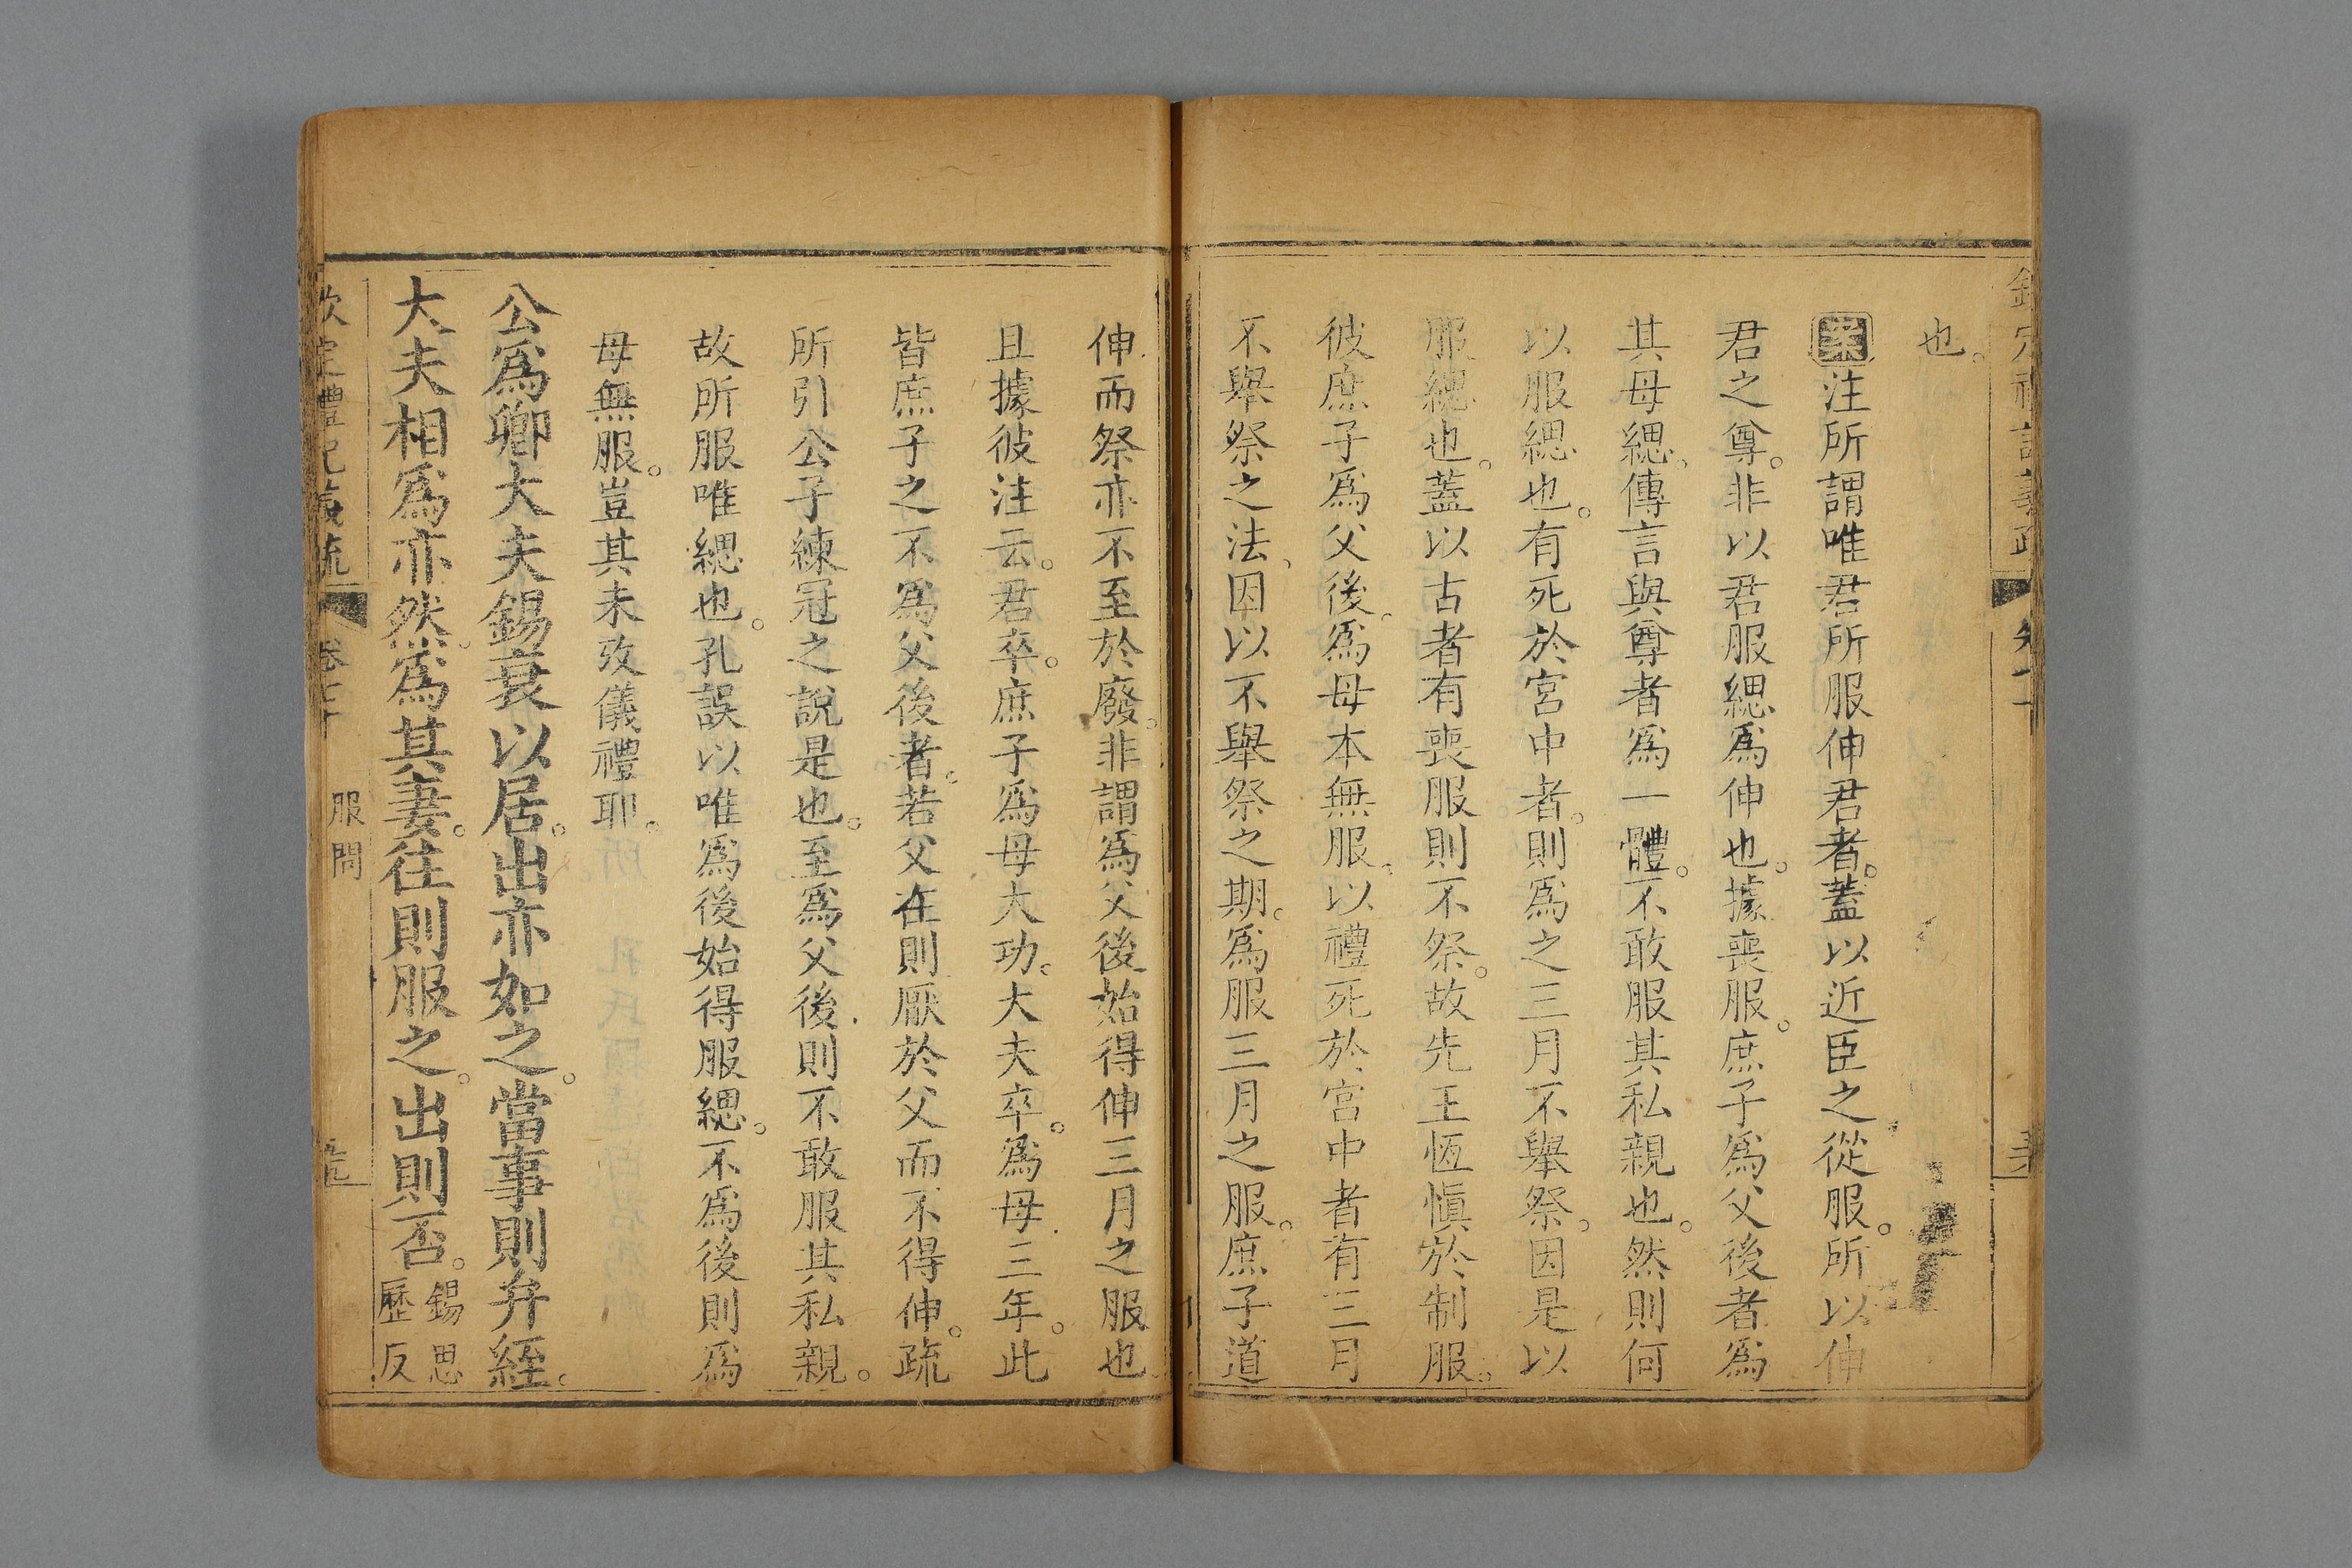 也。
案注所謂唯君所服伸君者。蓋以近臣之從服。所以伸
君之尊。非以君服緦爲伸也。據喪服。庶子爲父後者爲
其母緦。傳言與尊者爲一體。不敢服其私親也。然則何
以服緦也。有死於宮中者。則爲之三月不舉祭。因是以
服緦也。蓋以古者有喪服則不祭。故先王恆愼於制服。
彼庶子爲父後。爲母本無服。以禮死於宮中者有三月
不舉祭之法、因以不舉祭之期。爲服三月之服。庶子道
伸而祭亦不至於廢。非謂爲父後始得伸三月之服也
且據彼注云。君卒。庶子爲母大功。大夫卒。爲母三年。此
皆庶子之不爲父後者。若父在則厭於父而不得伸。疏
所引公子練冠之說是也。至爲父後則不敢服其私親。
故所服唯緦也。孔誤以唯爲後始得服緦。不爲後則爲
母無服。豈其未攷儀禮耶。
公爲卿大夫錫衰以居。出亦如之。當事則弁絰。
大夫相爲亦然。爲其妻。往則服之。出則否。錫思
歷反
欽定禮記義疏 卷七十 服問